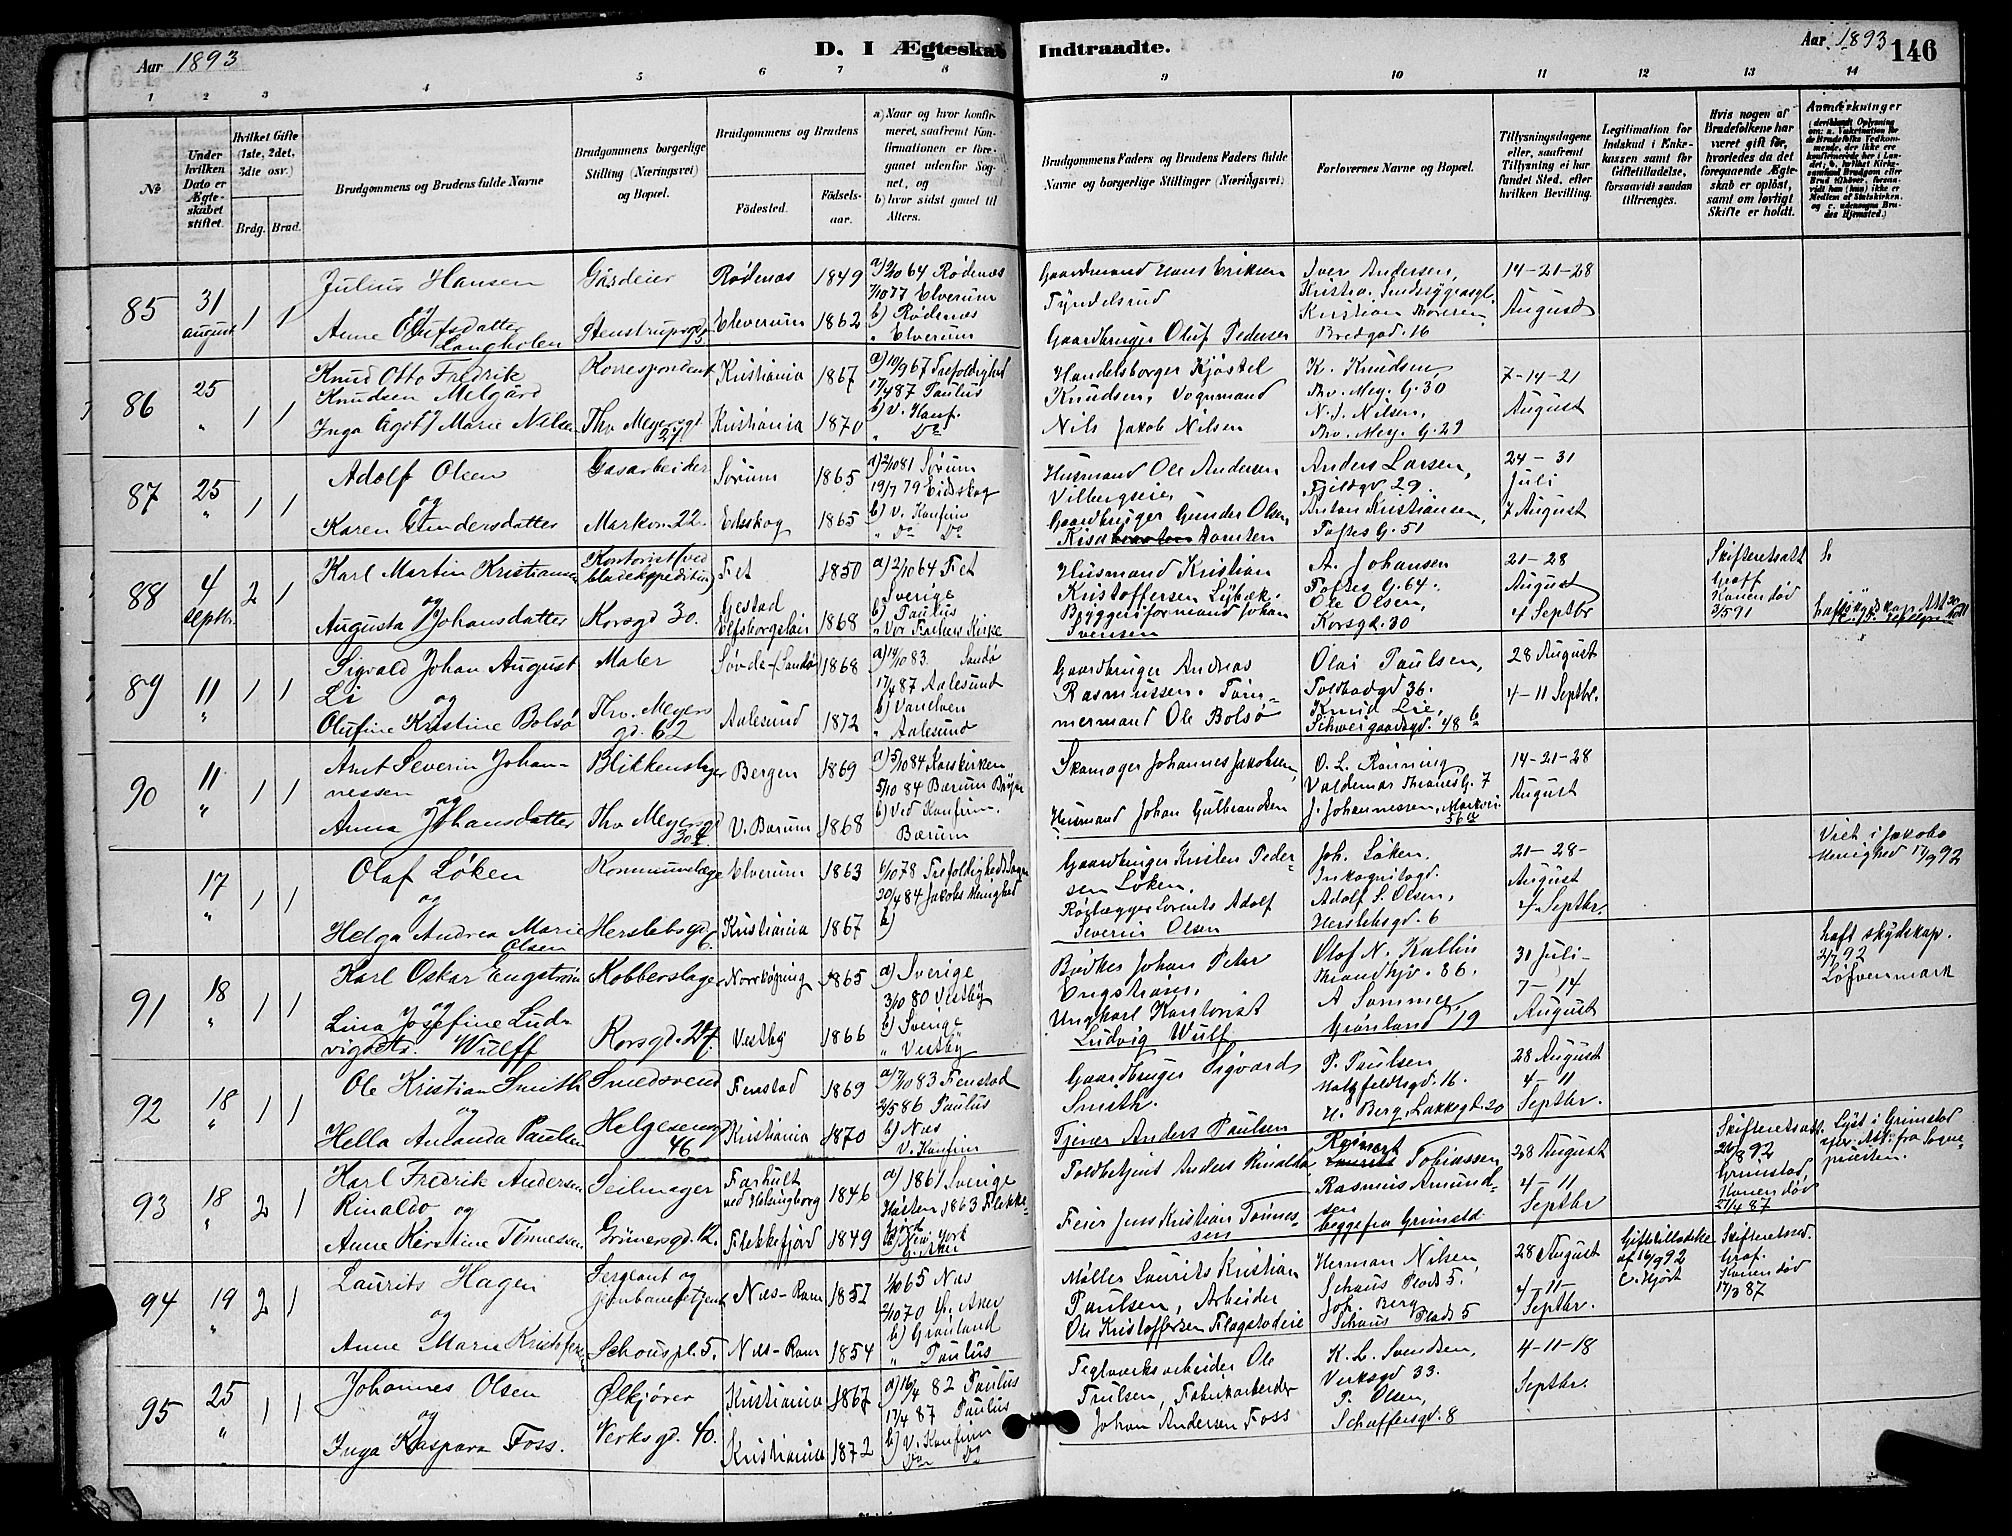 Aar 1893
D. I Ægteskab Indtraadte.
Aar 1893
146
1 2 3 4 5 6 7 8 9 10 11 12 13 14
No
Under hvilken Dato er Ægteskabet stiftet.
Hvilket Gifte (1ste, 2det, 3die osv.)
Brdg. Brud.
Brudgommens og Brudens fulde Navne
Brudgommens borgerlige Stilling (Næringsvei) og Bopæl.
Brudgommens og Brudens
Fødested.
Fødselsaar.
a) Naar og hvor konfirmeret, saafremt Konfirmationen er foregaaet udenfor Sognet, og
b) hvor sidst gaaet til Alters.
Brudgommens Faders og Brudens Faders fulde Navne og borgerlige Stillinger (Næringsvei.)
Forlovernes Navne og Bopæl.
Tillysningsdagene eller, saafremt Tillysning ei har fundet Sted, efter hvilken Bevilling.
Legitimation for Indskud i Enkekassen samt for Giftetilladelse, forsaavidt saadan tiltrænges.
Hvis nogen af Brudefolkene har været gift før, hvorledes da det foregaaende Ægteskab er opløst, samt om lovligt Skifte er holdt.
Anmærkninger
85
31 august
1 1
Julius Hansen
og
Anne Olufsdatter Langholen
Gårdeier
Stenstrupsgd 5
Rødenæs 1849
Elverum 1862
a) 2/10 64 Rødenæs
7/10 77 Elverum
b) Rødenæs
" Elverum
Gaardmand Hans Eriksen
Tyndelsrud
Gaardbruger Oluf Pedersen
Iver Andersen,
Kristian Thoresen
Bredgad. 16
14-21-28
August
86
25
"
1 1
Knud Otto Fredrik
Knudsen Melgård
Inga Ågot Marie Nilsen
Korrespondent
Thv Meyersgt
Kristiania 1867
Kristiania 1870
Trefoldighed
17/4 87 Paulus
b) v. Konf.
" Do
Handelsborger Kjøstel
Knudsen, Vognmand
Nils Jakob Nilsen
K. Knudsen,
Thv. Mey. G. 30
N. J. Nilsen,
Thv. Mey. G. 29
7-14-21
August
87
25
"
1 1
Adolf Olsen
og
Karen Gundersdatter
Gasarbeider
Markvn 22.
Sørum 1865
Eidskog 1865
a) 2/10 81 Sørum
19/7 79 Eidskog
b) v. Konfirm
" Do Do
Husmand Ole Andersen
Vilbergseie,
Gaardbruger Gunder Olsen,
Anders Larsen,
Fjeldgd 29.
Anton Kristiansen,
Toftes G. 51
24-31
Juli
7 August
88
4 Septbr.
2 1
Karl Martin Kristiansen
og
Augusta Johansdatter
Korsgd 30.
Fet 1850
Gestad
Elfsborgslän 1868
a) 2/10 64 Fet
Sverige
b) Paulus
" Vor Frelsers Kirke
Husmand Kristian
Kristoffersen
Bryggeriformand Johan
Svensen
A. Johansen
Toftes G. 64.
Ole Olsen,
Korsgd. 30
21-28
August
4 Septbr
Skifteretsatt
Konen død
3/5 91
89
11
"
1 1
Sigvald Johan August
Li og
Olufine Kristine Bolsø
Maler
Thv. Meyers
gd. 62
Søvde-(Sandø) 1868
Aalesund 1872
Sandø
17/4 87 Aalesund
b) Vanelven
" Aalesund
Gaardbruger Andreas
Rasmussen. Tømmermand Ole Bolsø
Olai Paulsen,
Toldbodgd 36.
Knud Lie,
Schweigaardsgd. 48 b
28 August
4-11 Septbr.
90
11
"
1 1
Arnt Severin Johannessen
og
Anna Johansdatter
Blikkenslager
Thv Meyersgd
Bergen 1869
V. Bærum 1868
a) 5/10 84 Korskirken
5/10 84 Bærum
b) Ved Konfirm.
Bærum
Skomager Johannes Jakobsen,
Husmand Johan Gulbrandsen
O. L. Rønning
Valdemar Thranes G. 7
J. Johannessen, Markvei
56 a
14-21-28
August
17
"
1 1
Olaf Løken
og
Helga Andrea Marie
Olsen
Kommunelæge
Herslebsgd 6.
Elverum 1863
Kristiania 1867
Trefoldighedssogn
20/4 84 Jakobs Menighed
b)
Gaardbruger Kristen Pedersen Løken.
Rørlægger Lorents Adolf
Severin Olsen
Joh. Løken,
Inkognitogd.
Adolf S. Olsen,
Herslebsgd. 6
21-28-
August
4 Septbr.
Viet i Jakobs
Menighed 17/9 92
91
18
"
1 1
Karl Oskar Engström
og
Lina Josefine Ludvigsdtr. Wulff
Kobberslager
Korsgd. 24.
Norrköping 1865
Vestby 1866
a) Sverige
3/10 80 Vestby
b) Sverige
" Vestby
Bødker Johan Peter
Engström.
Ungkarl Kontorist
Ludvig Wulf
Olof N. Kallin
Trondhjv. 86.
A Sommer
Grønland 19
31 Juli-
7-14
August
haft skydskap.
2/7 92
Löfvenmark
92
18
"
1 1
Ole Kristian Smith
og
Hella Amanda Paulsen
Smedsvend
Helgesensgd
46
Fenstad 1869
Kristiania 1870
a) 7/10 83 Fenstad
2/5 86 Paulus
b) Næs
V. Konfirm
Gaardbruger Sigvard
Smith.
Tjener Anders Paulsen
P. Paulsen
Motzfeldtsgd. 16.
H. Berg, Lakksgd. 20
28 August
4-11
Septbr.
93
18
"
2 1
Karl Fredrik Andersen
Rinaldo og
Anne Kirstine Tønnesen
Seilmager
Grünersgd. 12.
Farhult
ved Helsingborg 1846
Flekkefjord 1849
a) 1861 Sverige
Høsten 1863 Flekkefjord
b) New York
Toldbetjent Anders Rinaldo
Feier Jens Kristian Tønnessen
Reinert Tobiassen
Rasmus Amundsen
begge fra Grimstd
28 August
4-11
Septbr
Skifteretsatt.
29/8 92
Grimstad
Konen død
21/4 87
Lyst i Grimstad
efter Att. fra Sognepresten.
94
19
"
2 1
Laurits Hagen
og
Anne Marie Kristofersen
Sergeant og
Jernbanebetjent
Schouspl. 5.
Næs-Rom 1851
Næs-Rom 1854
1/10 65 Næs
2/10 70 Ø. Aker
b) Grønland
" Paulus
Møller Laurits Kristian
Paulsen, Arbeider
Ole Kristoffersen Flagstadeie
Herman Nilsen,
Schous Plads 5.
Joh. Berg
Schous Plads 5
28 August
4-11-
Septbr.
Giftetilladelse
af 16/9 92
C. Hjort
Skifteretsad.
Konen død
17/3 87
95
25
"
1 1
Johannes Olsen
og
Inga Kaspara Foss.
Ølkjører
Verksgd. 40.
Kristiania 1867
Kristiania 1872
a) 16/4 82 Paulus
17/4 87 Paulus
b) V. Konfirm
" Do Do
Teglverksarbeider Ole
Trulsen, Fabrikarbeider
Johan Andersen Foss
K. L. Svendsen,
Verksgd 33.
P. Olsen,
Schaffersgd. 8
4-11-18
Septbr.